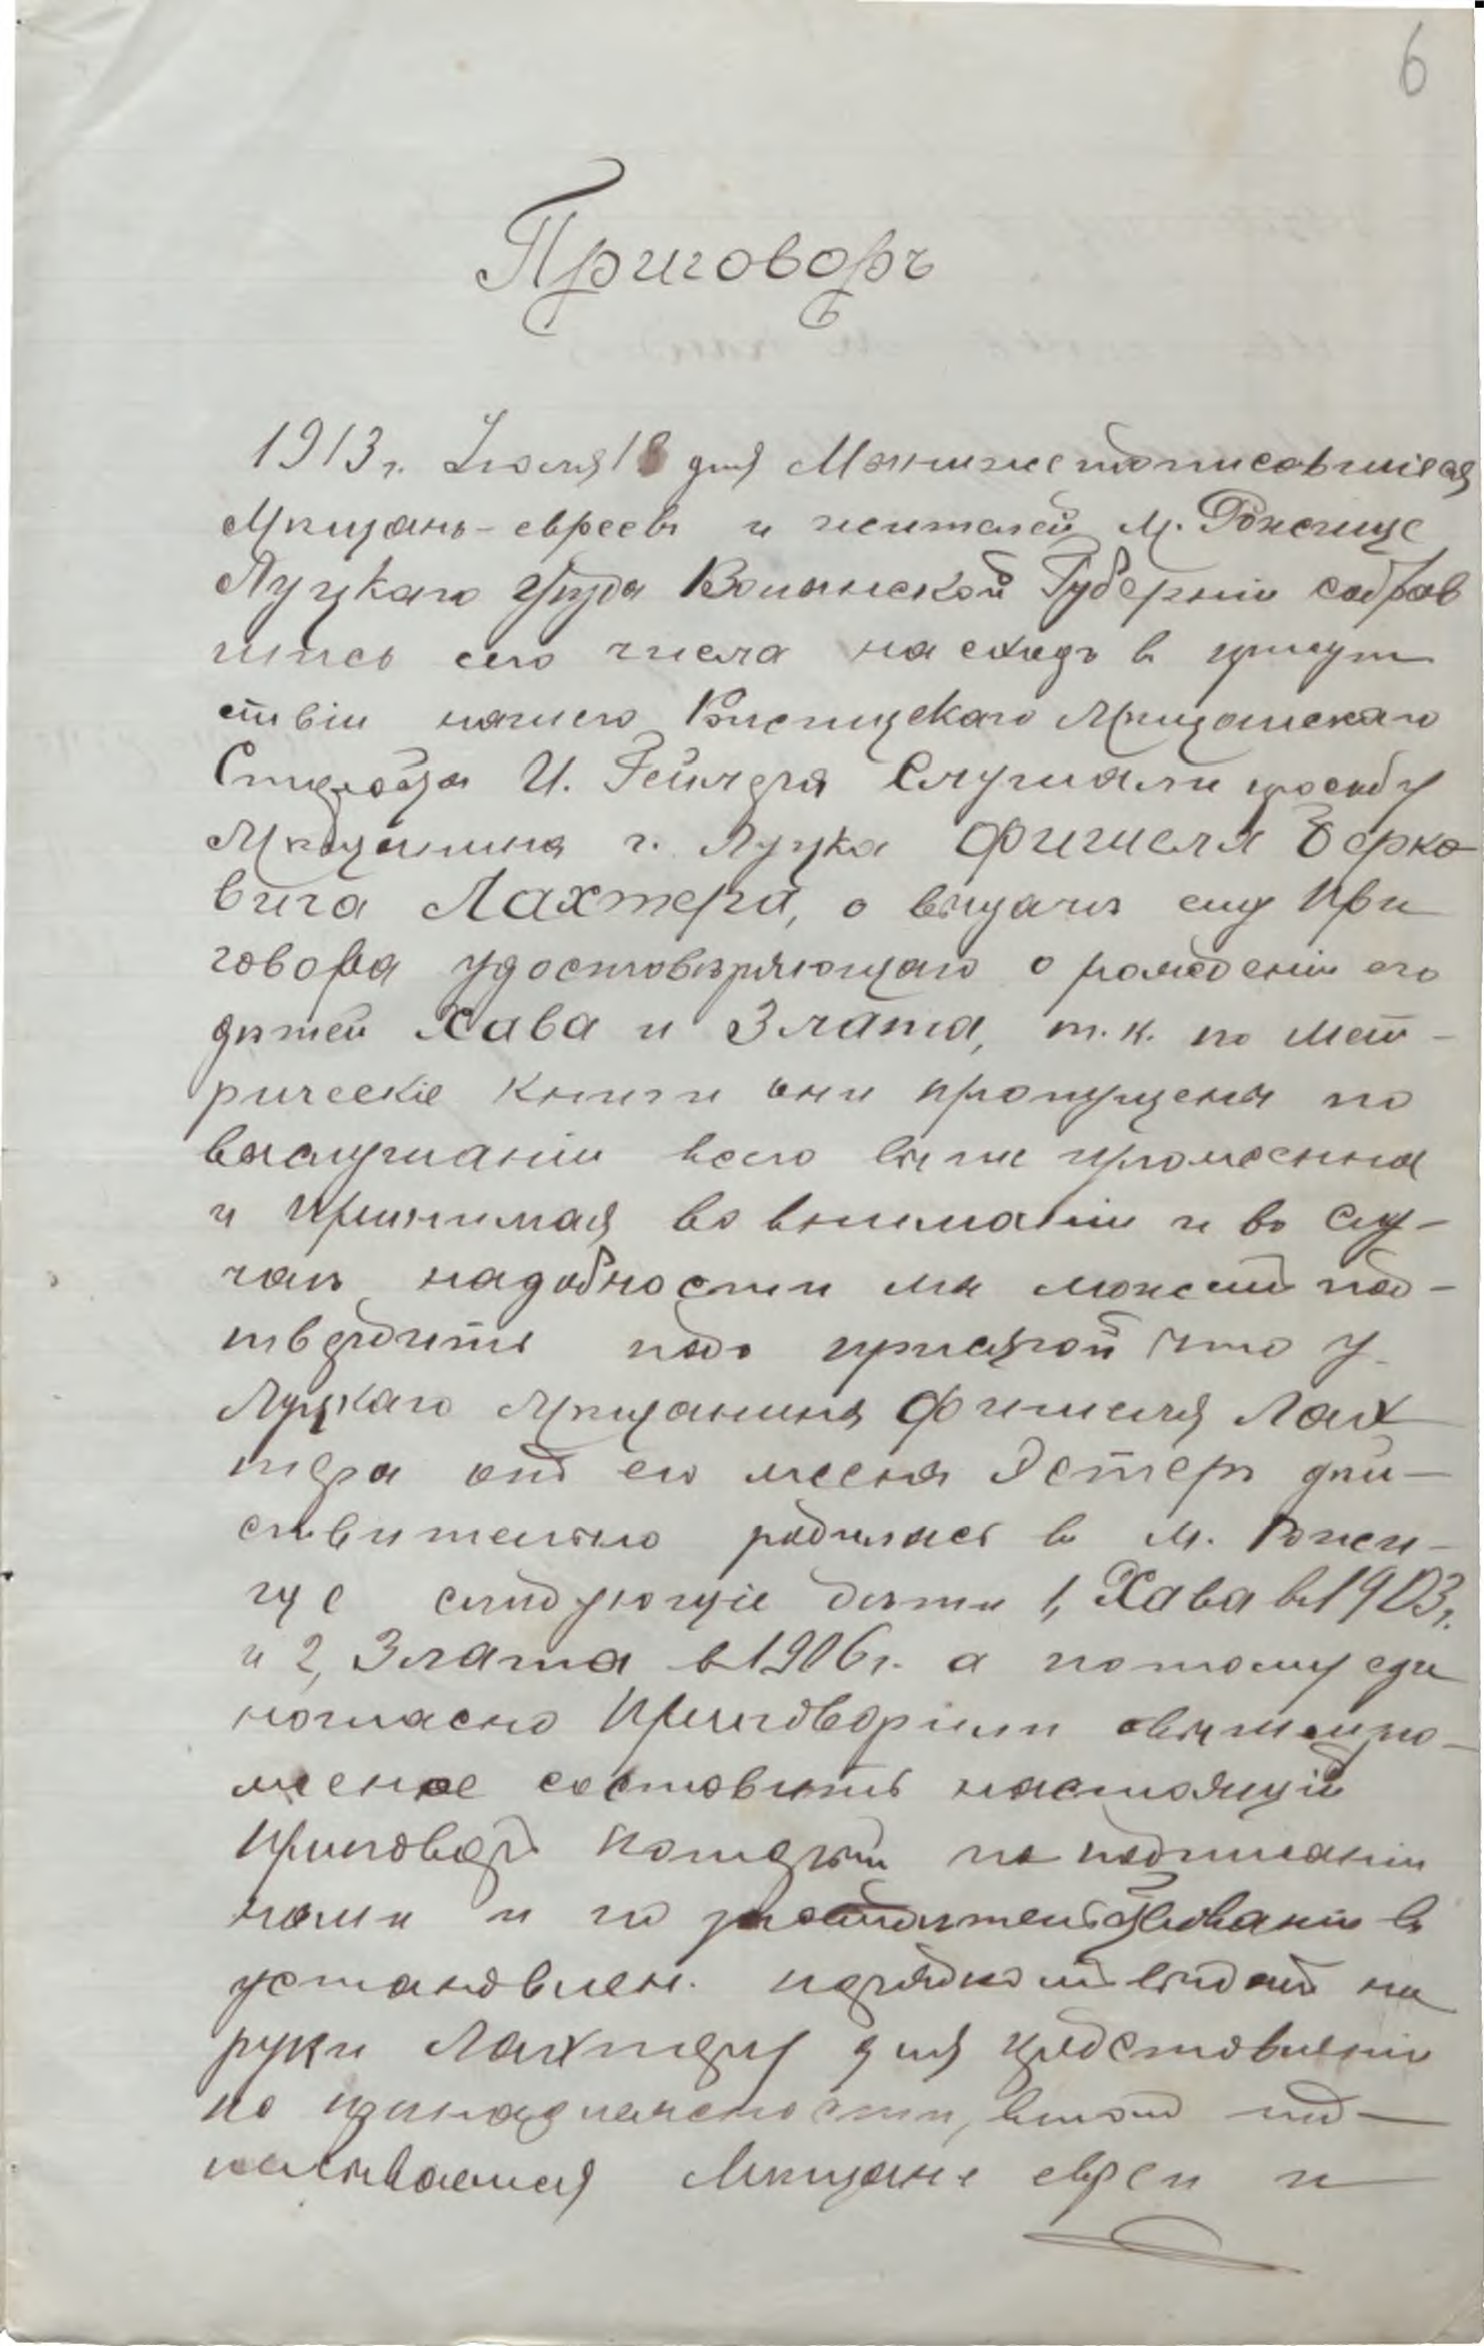 6
Приговоръ
1913 г. Июля 18 дня Мы нижеподписавшiеся
Мѣщанъ-евреевъ и жителей м. Рожище
Луцкаго Уѣзда Волынской Губернiи собрав
шись сего числа на сходъ в присут
ствiи нашего Рожищскаго Мѣщанскаго
Старосты И. Гейлера Слушали прозьбу
Мѣщанина г. Луцка Фишеля Берко-
вича Лахтера, о выдачѣ ему При
говора удостовѣряющаго о рожденiи его
дѣтей Хава и Злата, т.к. по мет-
рическiе книги они пропущены по
выслушанiи всего выше изложеннаго
и Принимая во вниманiи и во слу-
чаѣ надобности мы можемъ под-
твердить подъ присягой что у
Луцкаго мѣщанина Фишеля Лах
тера отъ его жены Эстеръ дѣй-
ствительно родились в м. Рожи-
ще слѣдующiе дѣти 1, Хава в 1903 г.
и 2, Злата в 1906 г. а потому еди
ногласно Приговорили
составить настоящiй
Приговоръ который по подписанiи
нами и по в
установлен. порядкомъ выдать на
руки Лахтеру для представленiи
по принадлежности, в томъ под-
писываемся Мѣщане евреи и